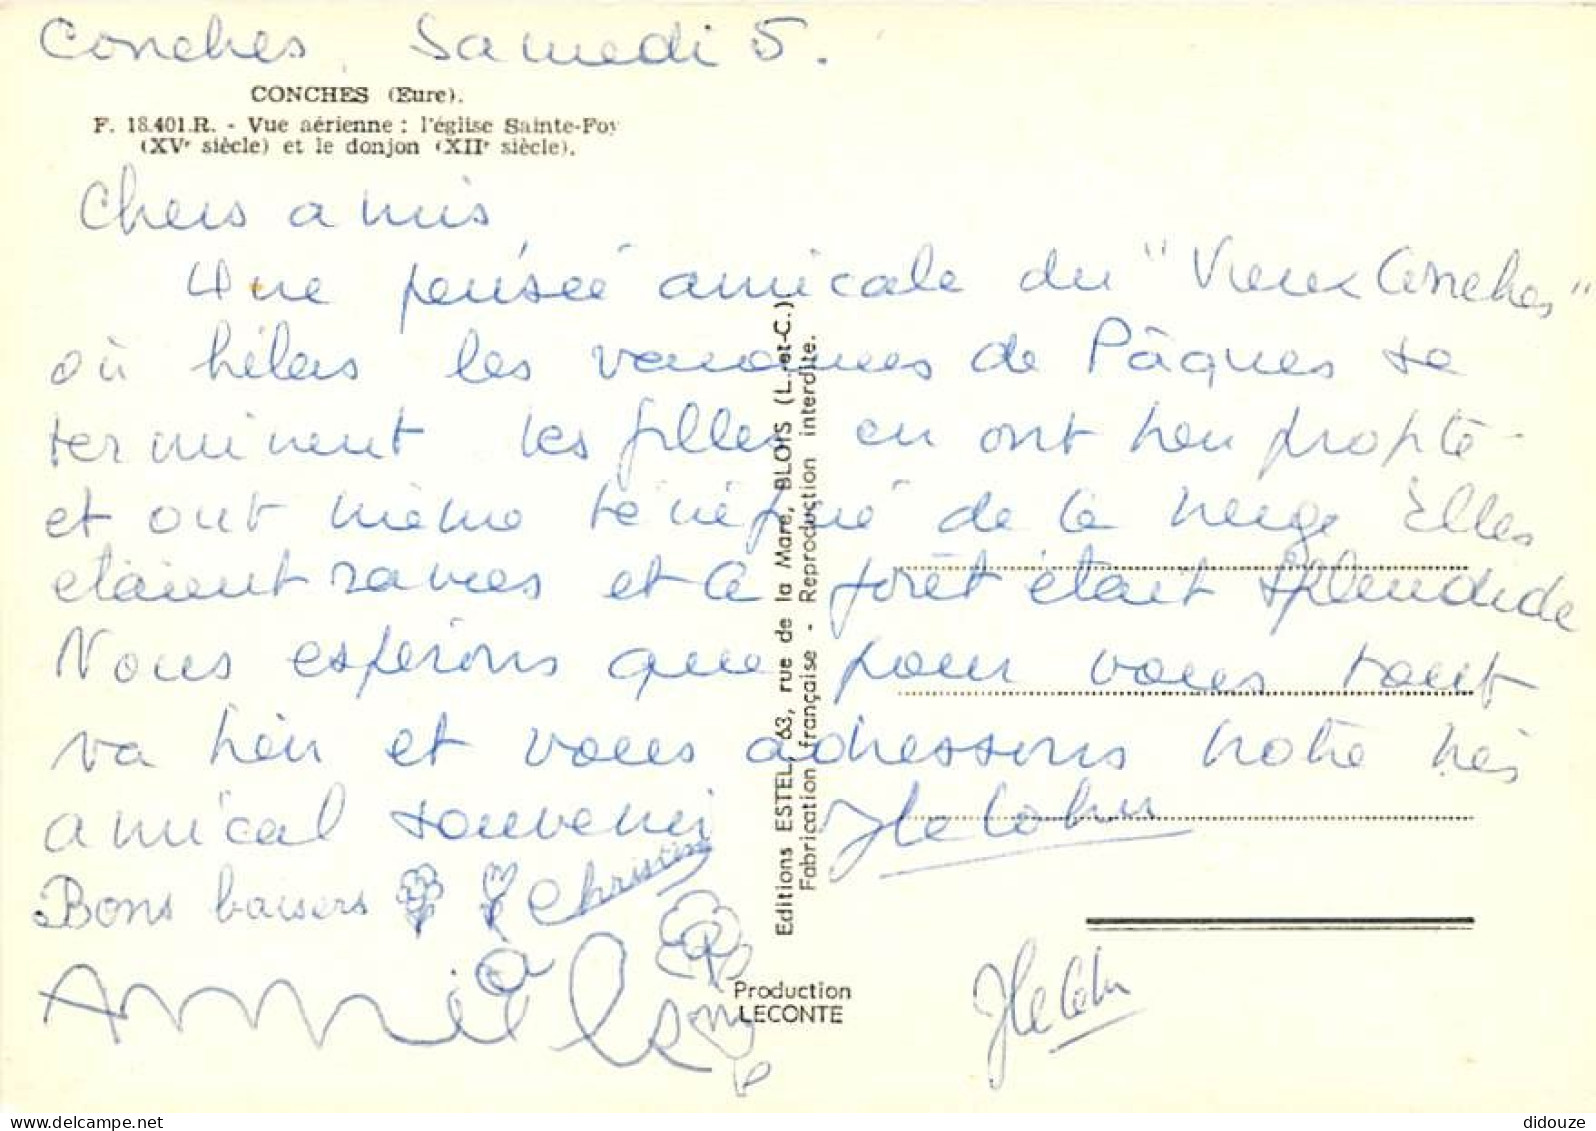 Conches, Samedi 5.
CONCHES (Eure).
F. 18.401.R. - Vue aérienne : l'église Sainte-Foy
(XVe siècle) et le donjon (XIIe siècle).
Chers amis
Une pensée amicale du "Vieux Conches"
où hélas les vacances de Pâques se
terminent les filles en ont bien profité
et ont même bénéficié de la neige Elles
étaient ravies et la forêt était splendide
Nous espérons que pour vous tout
va bien et vous adressons notre très
amical souvenir
Bons baisers Christine
Editions ESTEL, 63, rue de la Mare, BLOIS (L.-et-C.)
Fabrication française - Reproduction interdite.
Production
LECONTE
didouze
delcampe.net